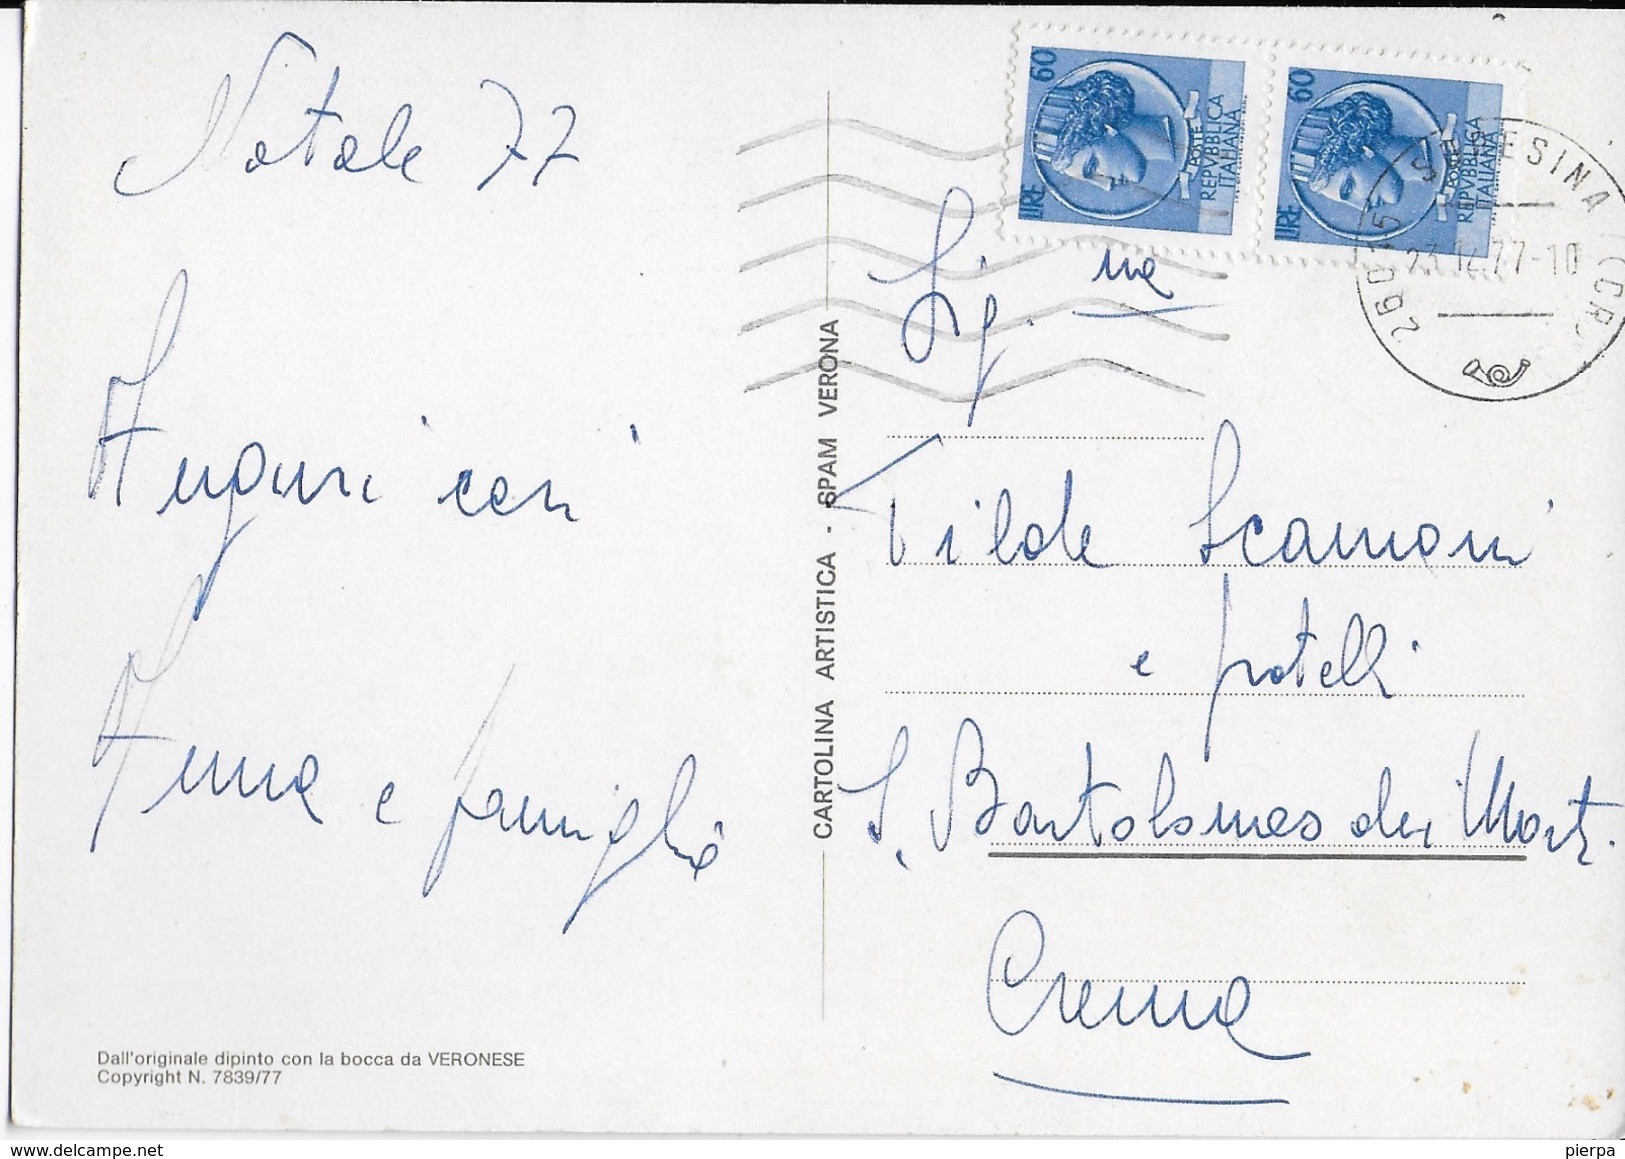 Natale 77
Auguri cari
Anna e famiglia
CARTOLINA ARTISTICA - SPAM VERONA
Dall'originale dipinto con la bocca da VERONESE
Copyright N. 7839/77
60
LIRE
POSTE
REPVBBLICA
ITALIANA
60
LIRE
POSTE
REPVBBLICA
ITALIANA
23.12.77-10
(CR)
Sig.na
Tilde Scamoni
e fratelli
S. Bartolomeo dei Morti.
Crema
www.delcampe.net
pierpa